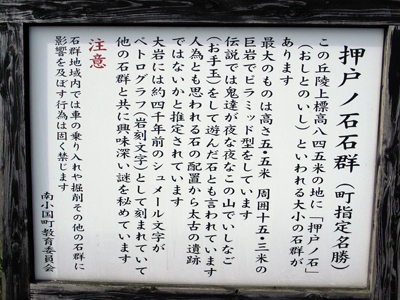 押戸ノ石石群(町指定名勝)
この丘陵上標高八四五米の地に「押戸ノ石」
(おしとのいし)といわれる大小の石群が
あります
最大のものは高さ五・五米 周囲十五・三米の
巨岩でピラミッド型をしています
伝説では鬼達が夜な夜なこの山でいしなご
(お手玉)をして遊んだ石とも言われています
人為とも思われる石の配置から太古の遺跡
ではないかと推定されています
大岩には約四千年前のシュメール文字が
ペトログラフ(岩刻文字)として刻まれていて
他の石群と共に興味深い謎を秘めています
注意
石群地域内では車の乗り入れや掘削その他の石群に
影響を及ぼす行為は固く禁じます
南小国町教育委員会